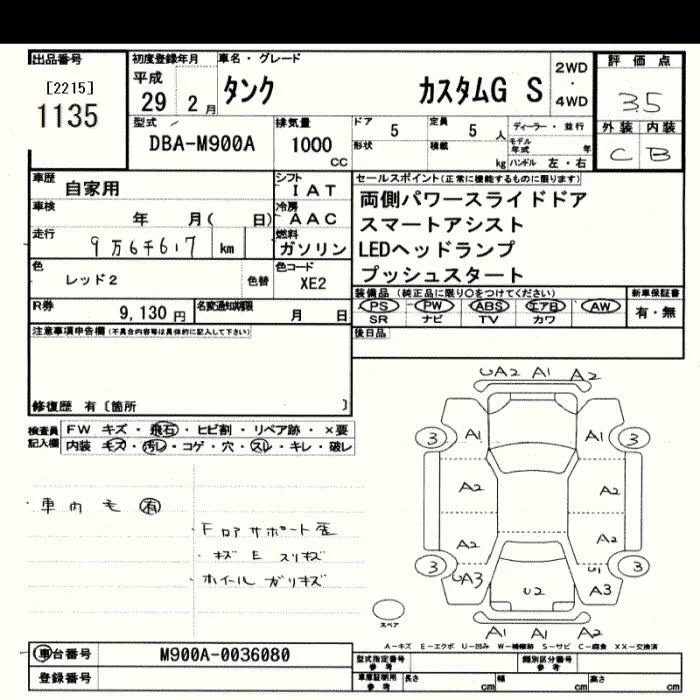 出品番号
[2215]
1135
初度登録年月
平成
29 2月
車名・グレード
タンク カスタムG S
2WD
・
4WD
評価点
3.5
外装 内装
C B
型式
DBA-M900A
排気量
1000
CC
ドア
5
定員
5 人
ディーラー・並行
形状
積載
kg
モデル年式 年
ハンドル 左・右
車歴 自家用
シフト
I A T
車検 年 月( 日)
冷房
A A C
走行 9万6千617 km
燃料
ガソリン
色 レッド2
色替
色コード
XE2
R券 9,130 円
名変通知期限 月 日
セールスポイント(正常に機能するものに限ります)
両側パワースライドドア
スマートアシスト
LEDヘッドランプ
プッシュスタート
装備品 (純正品に限り○をつけてください)
PS PW ABS エアB AW
SR ナビ TV カワ
新車保証書
有・無
後日品
注意事項申告欄(不具合内容等は具体的に記入して下さい)
修復歴 有〔箇所 〕
検査員
記入欄
FW キズ・飛石・ヒビ割・リペア跡・×要
内装 キズ・汚レ・コゲ・穴・スレ・キレ・破レ
・車内 毛 有
・Fロアサポート歪
・キズ E スリキズ
・ホイール ガリキズ
UA2 A1 A2
3 A1 A1 3
A2 A2
A2 A2
3 UA3 U2 U1 A3 3
A1 A1 A2
スペア
A-キズ E-エクボ U-凹み W-補修跡 S-サビ C-腐食 XX-交換済
車台番号 M900A-0036080
登録番号
型式指定番号
参考
類別区分番号
参考
車庫証明用
参考
長さ cm 幅 cm 高さ cm